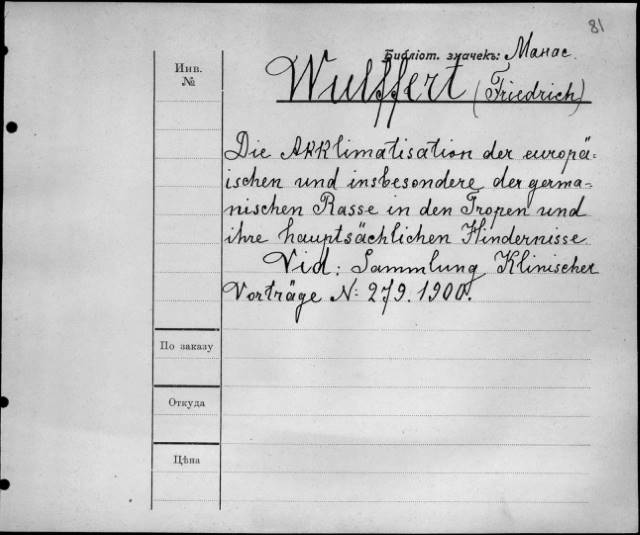 81
Библіот. значекъ: Манас.
Инв.
№
Wulffert (Friedrich)
Die Akklimatisation der europä=
ischen und insbesondere der germa-
nischen Rasse in den Tropen und
ihre hauptsächlichen Hindernisse.
Vid: Sammlung Klinischer
Vorträge N: 279. 1900.
По заказу
Откуда
Цѣна